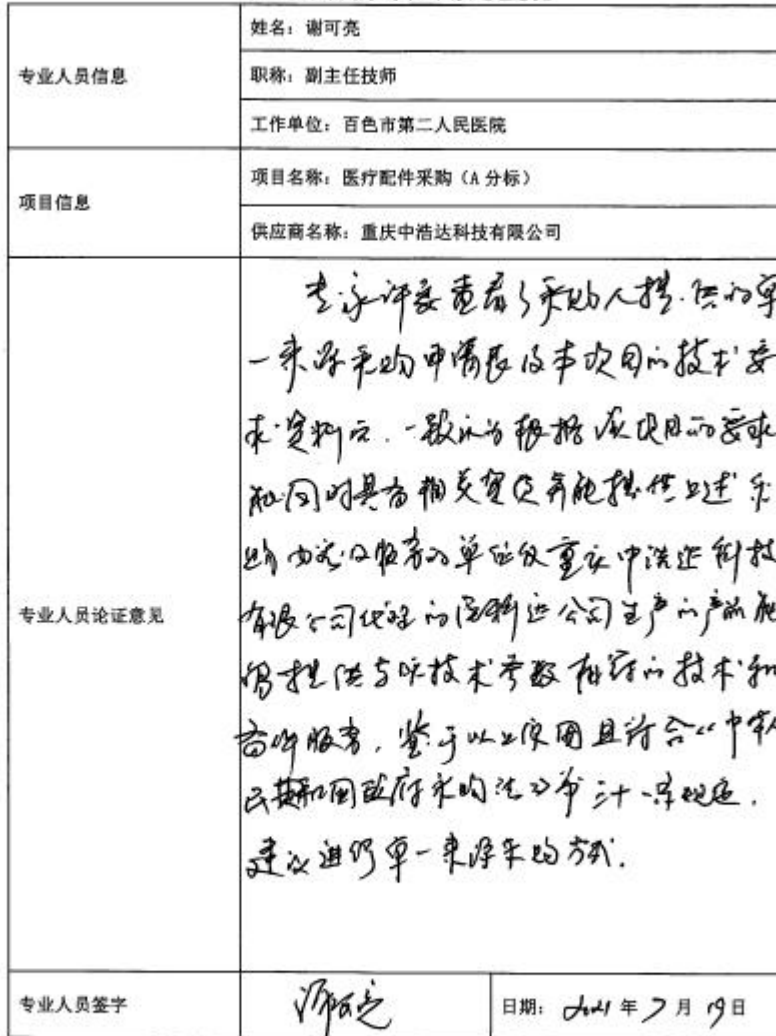 专业人员信息
姓名：谢可亮
职称：副主任技师
工作单位：百色市第二人民医院
项目信息
项目名称：医疗配件采购（A 分标）
供应商名称：重庆中浩达科技有限公司
专业人员论证意见
专家评委查看了采购人提供的单
一来源采购申请表及本项目的技术要
求资料后，一致认为根据该项目的要求
能同时具备相关资质并能提供上述采
购内容及服务的单位仅重庆中浩达科技
有限公司代理的医科达公司生产的产品能
够提供与所技术参数相符的技术和
备件服务，鉴于以上原因且符合《中华人
民共和国政府采购法》第三十一条规定，
建议进行单一来源采购方式.
专业人员签字
谢可亮
日期：2021 年 7 月 19 日